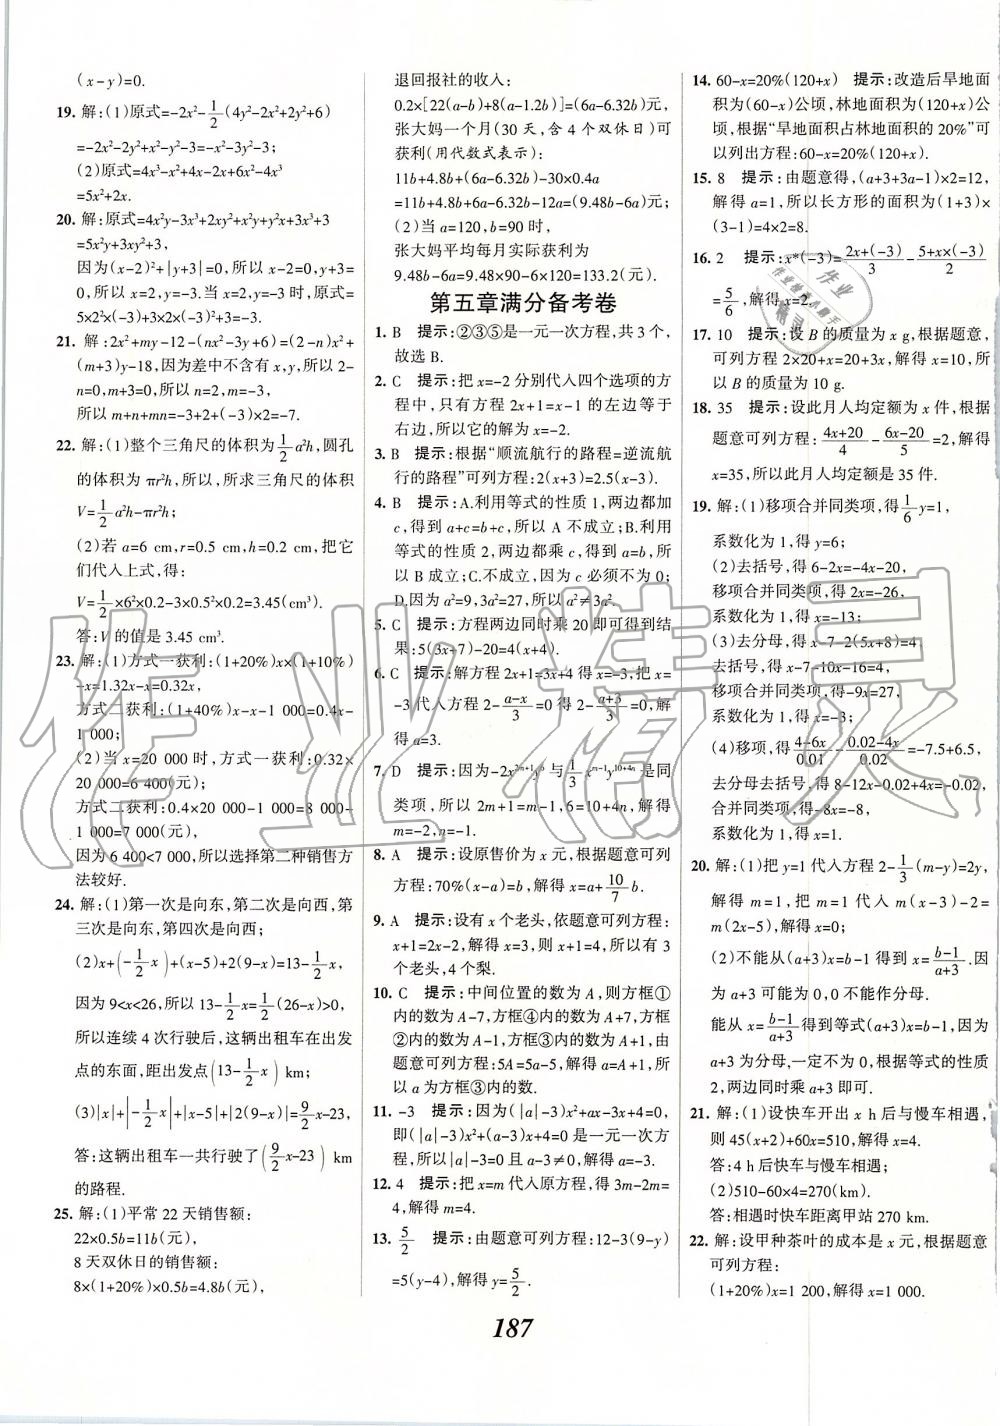 (x-y)=0.
19. 解:(1)原式=-2x²-1/2(4y²-2x²+2y²+6)
=-2x²-2y²+x²-y²-3=-x²-3y²-3;
(2)原式=4x³-x²+4x-2x+6x²-4x³
=5x²+2x.
20. 解:原式=4x²y-3x³+2xy²+x²y+y²x+3x³+3
=5x²y+3xy²+3,
因为(x-2)²+|y+3|=0,所以x-2=0,y+3=
0,所以x=2,y=-3,所以原式=
5×2²×(-3)+3×2×(-3)²+3=-3.
21. 解:2x²+my-12-(nx²-3y+6)=(2-n)x²+
(m+3)y-18,因为差中不含有x,y,所以2-
n=0,m+3=0,所以n=2,m=-3,
所以m+n+mn=-3+2+(-3)×2=-7.
22. 解:(1)整个三角尺的体积为1/2a²h,圆孔
的体积为πr²h,所以,所求三角尺的体积
V=1/2a²h-πr²h;
(2)若a=6 cm,r=0.5 cm,h=0.2 cm,把它
们代入上式,得:
V=1/2×6²×0.2-3×0.5²×0.2=3.45(cm³).
答:V的值是3.45 cm³.
23. 解:(1)方式一获利:(1+20%)x×(1+10%)
-x=1.32x-x=0.32x,
方式二获利:(1+40%)x-x-1 000=0.4x-
1 000;
(2)当x=20 000时,方式一获利:0.32×
20 000=6 400(元);
方式二获利:0.4×20 000-1 000=8 000-
1 000=7 000(元),
因为6 400<7 000,所以选择第二种销售方
法较好.
24. 解:(1)第一次是向东,第二次是向西,第
三次是向东,第四次是向西;
(2)x+(-1/2x)+(x-5)+2(9-x)=13-1/2x,
因为9<x<26,所以13-1/2x=1/2(26-x)>0,
所以连续4次行驶后,这辆出租车在出发
点的东面,距出发点(13-1/2x) km;
(3)|x|+|-1/2x|+|x-5|+|2(9-x)|=9/2x-23,
答:这辆出租车一共行驶了(9/2x-23) km
的路程.
25. 解:(1)平常22天销售额:
22×0.5b=11b(元),
8天双休日的销售额:
8×(1+20%)×0.5b=4.8b(元),
退回报社的收入:
0.2×[22(a-b)+8(a-1.2b)]=(6a-6.32b)元,
张大妈一个月(30天,含4个双休日)可
获利(用代数式表示):
11b+4.8b+(6a-6.32b)-30×0.4a
=11b+4.8b+6a-6.32b-12a=(9.48b-6a)元;
(2)当a=120,b=90时,
张大妈平均每月实际获利为
9.48b-6a=9.48×90-6×120=133.2(元).
第五章满分备考卷
1. B 提示:②③⑤是一元一次方程,共3个,
故选B.
2. C 提示:把x=-2分别代入四个选项的方
程中,只有方程2x+1=x-1的左边等于
右边,所以它的解为x=-2.
3. B 提示:根据“顺流航行的路程=逆流航
行的路程”可列方程:2(x+3)=2.5(x-3).
4. B 提示:A.利用等式的性质1,两边都加
c,得到a+c=b+c,所以A不成立;B.利用
等式的性质2,两边都乘c,得到a=b,所
以B成立;C.不成立,因为c必须不为0;
D.因为a²=9,3a²=27,所以a²≠3a².
5. C 提示:方程两边同时乘20即可得到结
果:5(3x+7)-20=4(x+4).
6. C 提示:解方程2x+1=3x+4得x=-3,把x=
-3代入方程2-(a-x)/3=0得2-(a+3)/3=0,解
得a=3.
7. D 提示:因为-2x²ᵐ⁺¹y⁶与1/3x⁻ᵐ⁻¹y¹⁰⁺⁴ⁿ是同
类项,所以2m+1=-m-1,6=10+4n,解得
m=-2,n=-1.
8. A 提示:设原售价为x元,根据题意可列
方程:70%(x-a)=b,解得x=a+10/7b.
9. A 提示:设有x个老头,依题意可列方程:
x+1=2x-2,解得x=3,则x+1=4,所以有3
个老头,4个梨.
10. C 提示:中间位置的数为A,则方框①
内的数为A-7,方框④内的数为A+7,方框
②内的数为A-1,方框③内的数为A+1,由
题意可列方程:5A=5a-5,解得a=A+1,所
以a为方框③内的数.
11. -3 提示:因为(|a|-3)x²+ax-3x+4=0,
即(|a|-3)x²+(a-3)x+4=0是一元一次方
程,所以|a|-3=0且a-3≠0,解得a=-3.
12. 4 提示:把x=m代入原方程,得3m-2m=
4,解得m=4.
13. 5/2 提示:由题意可列方程:12-3(9-y)
=5(y-4),解得y=5/2.
14. 60-x=20%(120+x) 提示:改造后旱地面
积为(60-x)公顷,林地面积为(120+x)公
顷,根据“旱地面积占林地面积的20%”可
以列出方程:60-x=20%(120+x).
15. 8 提示:由题意得,(a+3+3a-1)×2=12,
解得a=1,所以长方形的面积为(1+3)×
(3-1)=4×2=8.
16. 2 提示:x*(-3)=(2x+(-3))/3-(5+x×(-3))/2
=5/6,解得x=2.
17. 10 提示:设B的质量为x g,根据题意,
可列方程2×20+x=20+3x,解得x=10,所
以B的质量为10 g.
18. 35 提示:设此月人均定额为x件,根据
题意可列方程:(4x+20)/4-(6x-20)/5=2,解得
x=35,所以此月人均定额是35件.
19. 解:(1)移项合并同类项,得1/6y=1,
系数化为1,得y=6;
(2)去括号,得6-2x=-4x-20,
移项合并同类项,得2x=-26,
系数化为1,得x=-13;
(3)去分母,得x-7-2(5x+8)=4
去括号,得x-7-10x-16=4,
移项合并同类项,得-9x=27,
系数化为1,得x=-3;
(4)移项,得(4-6x)/0.01-(0.02-4x)/0.02=-7.5+6.5,
去分母去括号,得8-12x-0.02+4x=-0.02,
合并同类项,得-8x=-8,
系数化为1,得x=1.
20. 解:(1)把y=1代入方程2-1/3(m-y)=2y,
解得m=1,把m=1代入m(x-3)-2=
m(2x-5),解得x=0;
(2)不能从(a+3)x=b-1得到x=(b-1)/(a+3).因
为a+3可能为0,0不能作分母.
能从x=(b-1)/(a+3)得到等式(a+3)x=b-1,因为
a+3为分母,一定不为0,根据等式的性质
2,两边同时乘a+3即可.
21. 解:(1)设快车开出x h后与慢车相遇,
则45(x+2)+60x=510,解得x=4.
答:4 h后快车与慢车相遇;
(2)510-60×4=270(km).
答:相遇时快车距离甲站270 km.
22. 解:设甲种茶叶的成本是x元,根据题意
可列方程:
(1+20%)x=1 200,解得x=1 000.
187
作业精灵